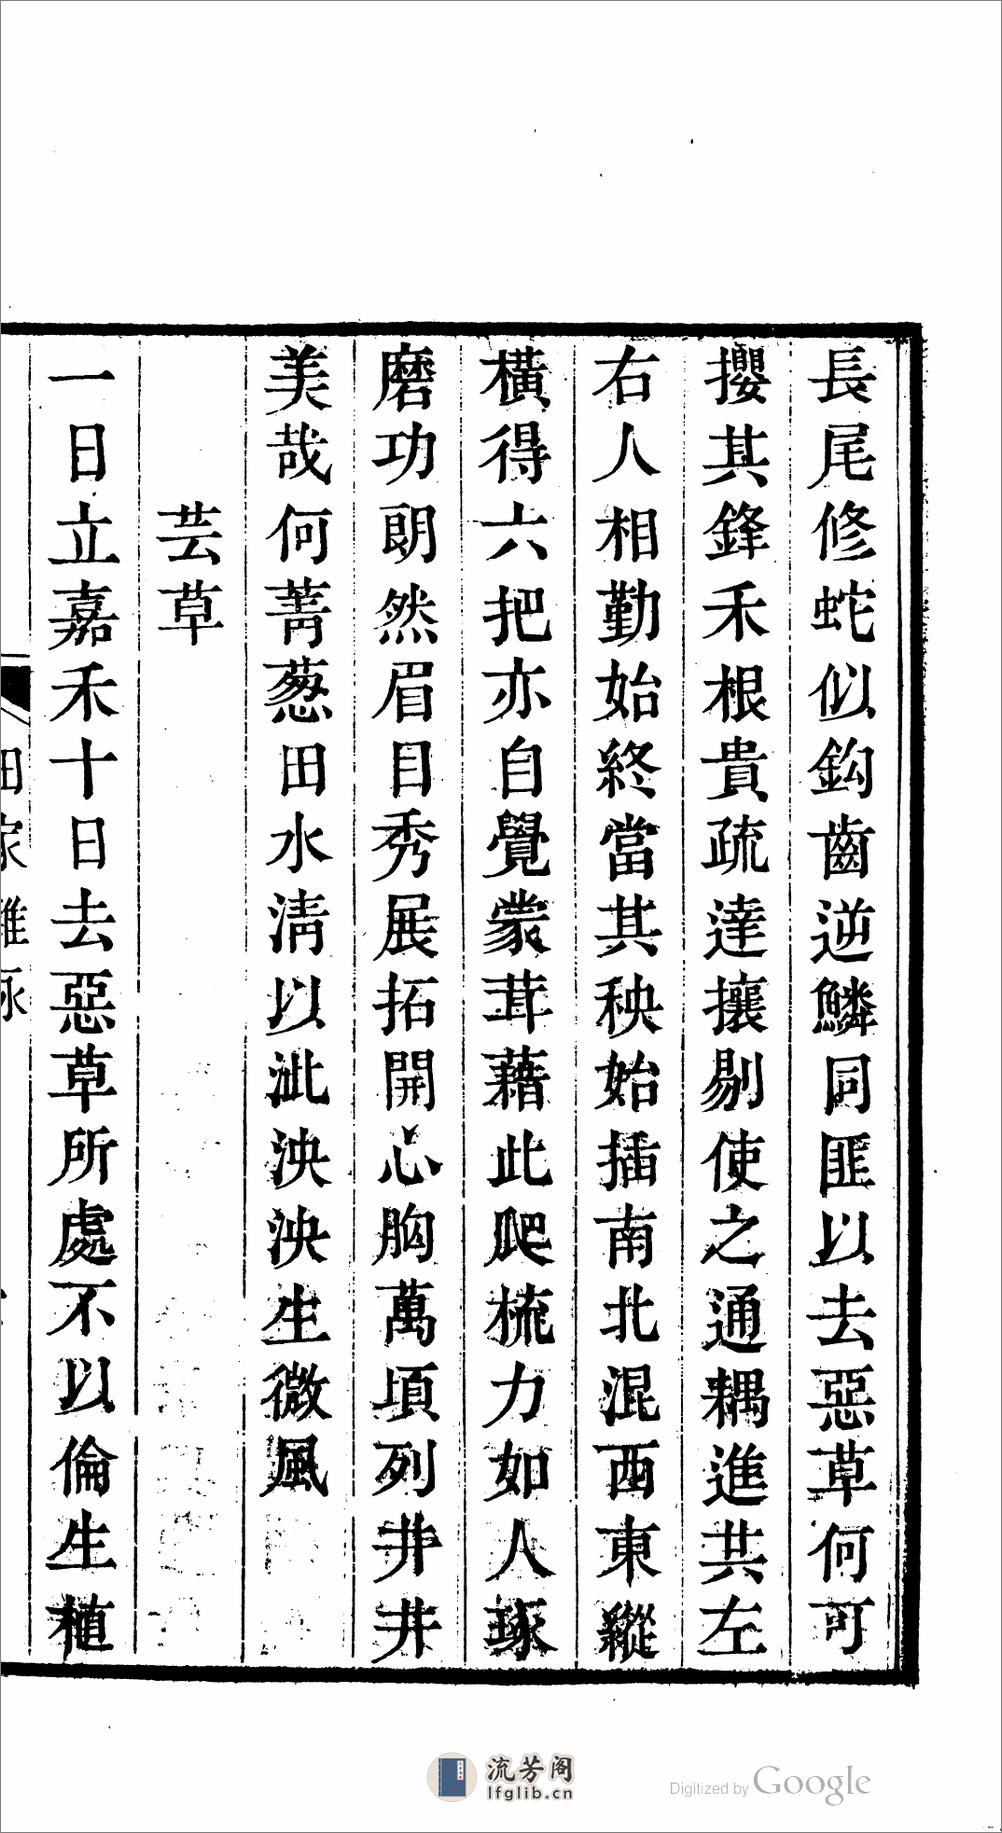 長尾修蛇似鈎齒逆鱗同匪以去惡草何可
攖其鋒禾根貴疏達攘剔使之通耦進共左
右人相勤始終當其秧始插南北混西東縱
橫得六把亦自覺蒙茸藉此爬梳力如人琢
磨功朗然眉目秀展拓開心胸萬頃列井井
美哉何菁葱田水清以泚泱泱生微風
芸草
一日立嘉禾十日去惡草所處不以倫生植
田家雜咏
流芳阁
lfglib.cn
Digitized by Google